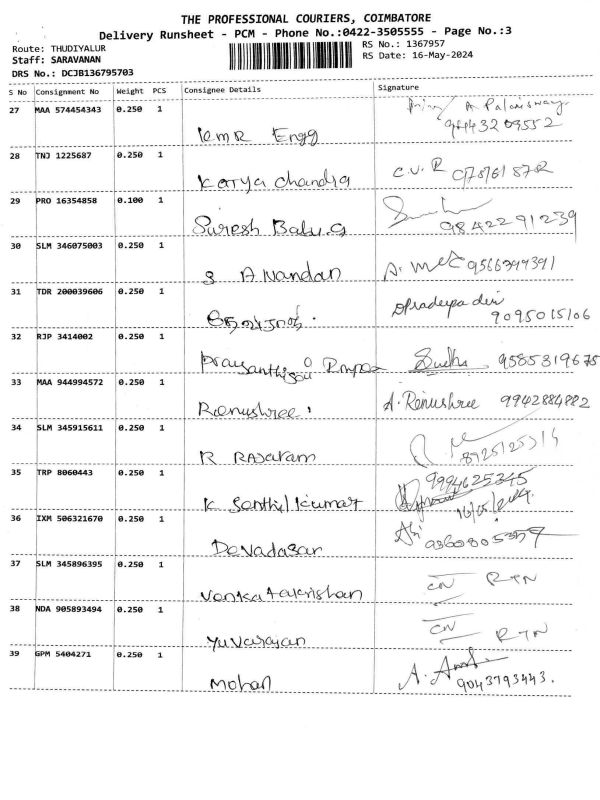 THE PROFESSIONAL COURIERS, COIMBATORE
Delivery Runsheet - PCM - Phone No.:0422-3505555 - Page No.:3
Route: THUDIYALUR
RS No.: 1367957
Staff: SARAVANAN
RS Date: 16-May-2024
DRS No.: DCJB136795703
S No Consignment No Weight PCS Consignee Details Signature
27 MAA 574454343 0.250 1
KMR Engg
28 TNJ 1225687 0.250 1
Karya chandra
29 PRO 16354858 0.100 1
Suresh Babu.G 9842291239
30 SLM 346075003 0.250 1
S ANandan
31 TDR 200039606 0.250 1
9095015106
32 RJP 3414002 0.250 1
Sudha 9585319675
33 MAA 944994572 0.250 1
Renushree A. Renushree 9942884882
34 SLM 345915611 0.250 1
R Rajaram
35 TRP 8060443 0.250 1
9994625345
K Senthil Kumar 16/05/2024.
36 IXM 506321670 0.250 1
Devadasar
37 SLM 345896395 0.250 1
CN RTN
Venkatakrishan
38 NDA 905893494 0.250 1
CN RTN
Yuvarajan
39 GPM 5404271 0.250 1
Mohan 9043793443.